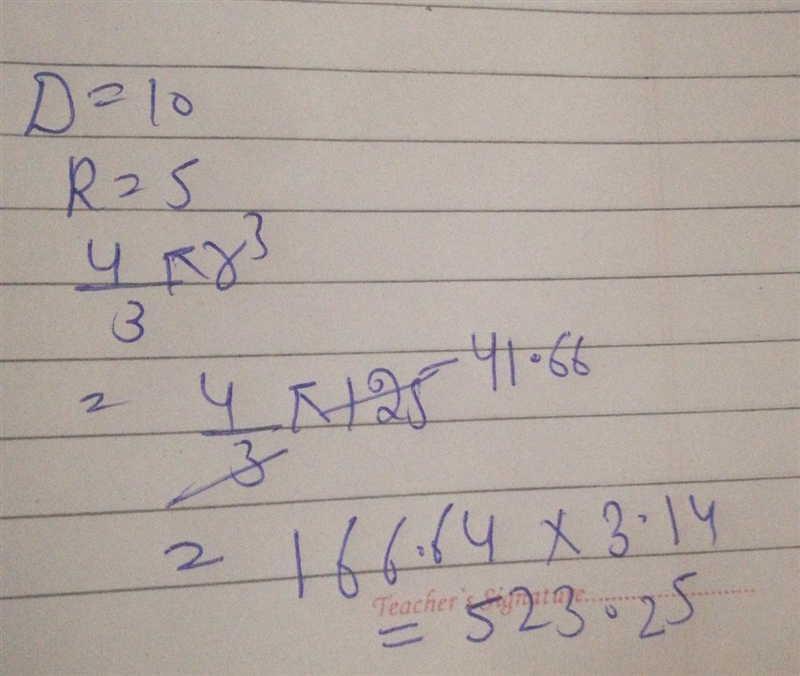 D = 10
R = 5
4/3 πr³
= 4/3 π125 41.66
= 166.64 x 3.14
Teacher's Signature..............................
= 523.25